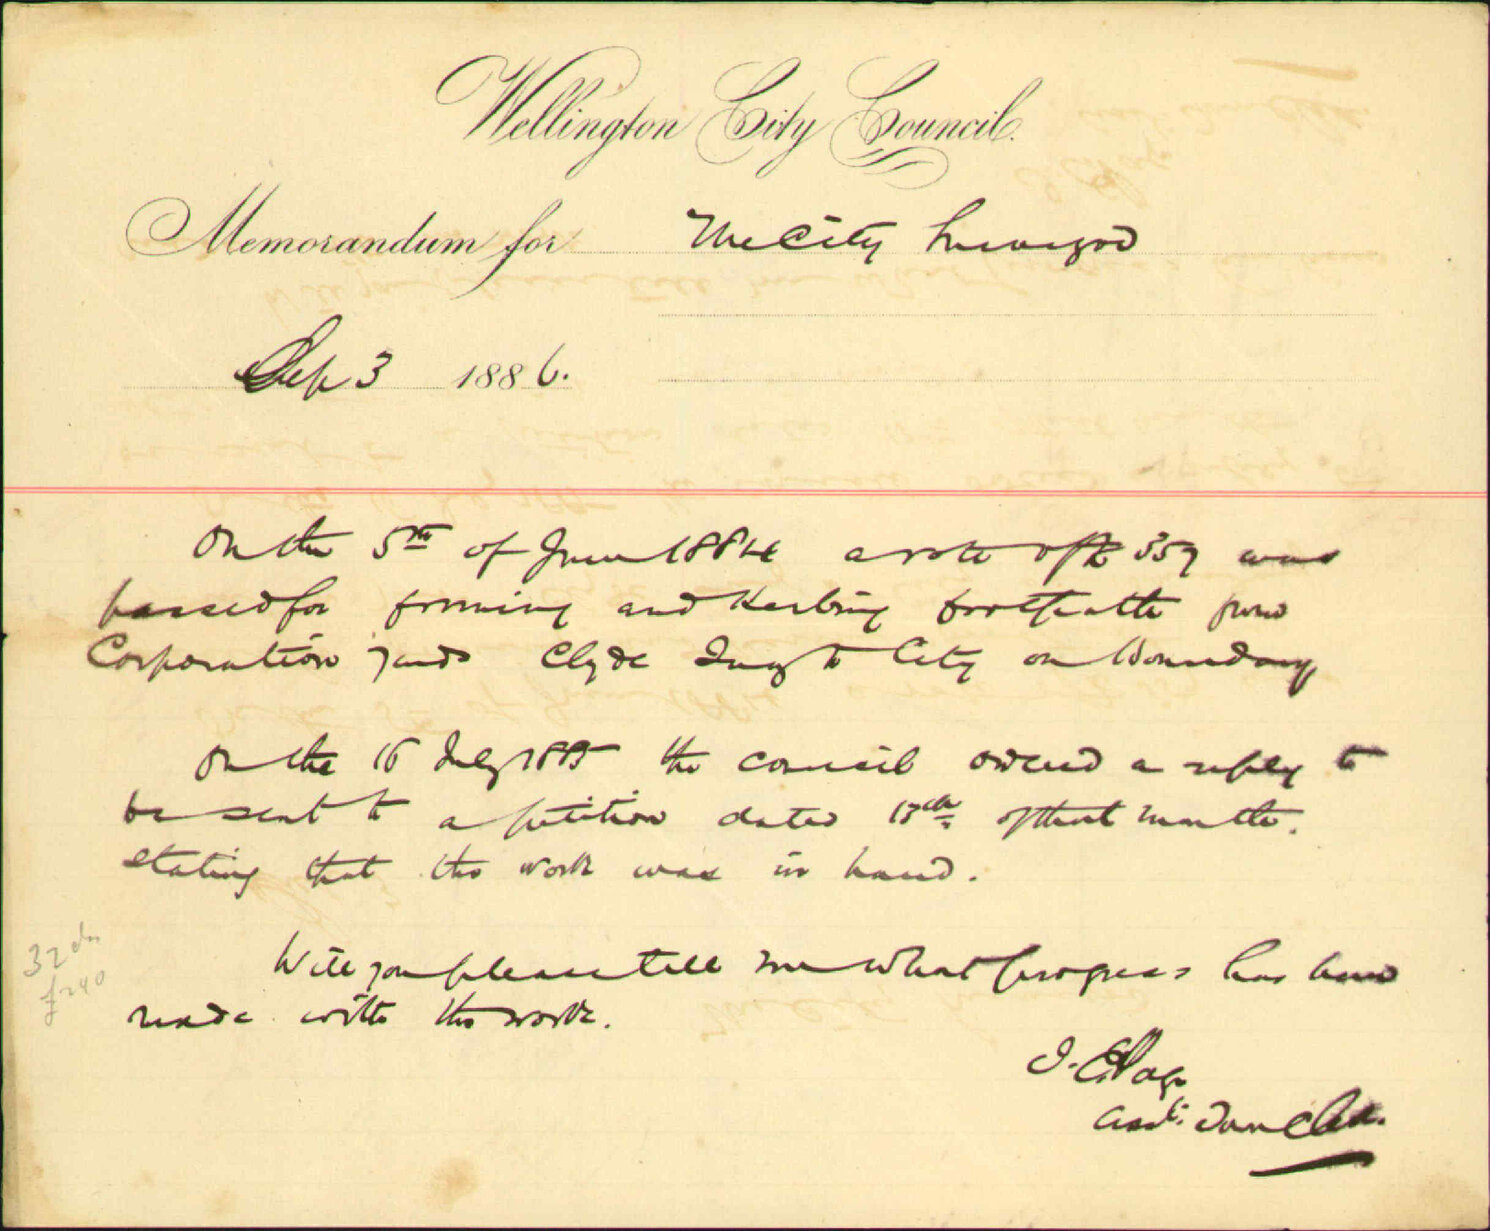 Wellington City Council.
Memorandum for The City Surveyor
Sep 3 1886.
On the 5th of June 1884 a vote of £359 was
passed for forming and Kerbing footpath from
Corporation yard Clyde Quay to City on Boundary
On the 16 July 1885 the council ordered a reply to
be sent to a petition dated 13th of that month.
stating that the work was in hand.
Will you please tell me what progress has been
made with the work.
J. E. Page
Asst. Town Clk.
32 chs
£240